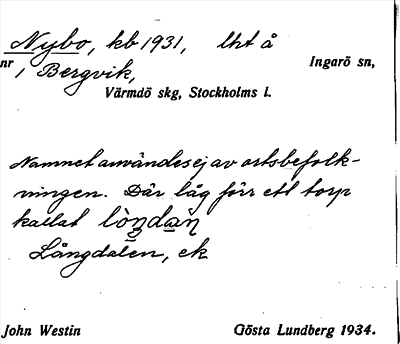 Nybo, kb 1931, lht å
nr 1 Bergvik, Ingarö sn,
Värmdö skg, Stockholms l.
Namnet användes ej av ortsbefolk-
ningen. Där låg förr ett torp
kallat
Långdalen, ek
John Westin Gösta Lundberg 1934.